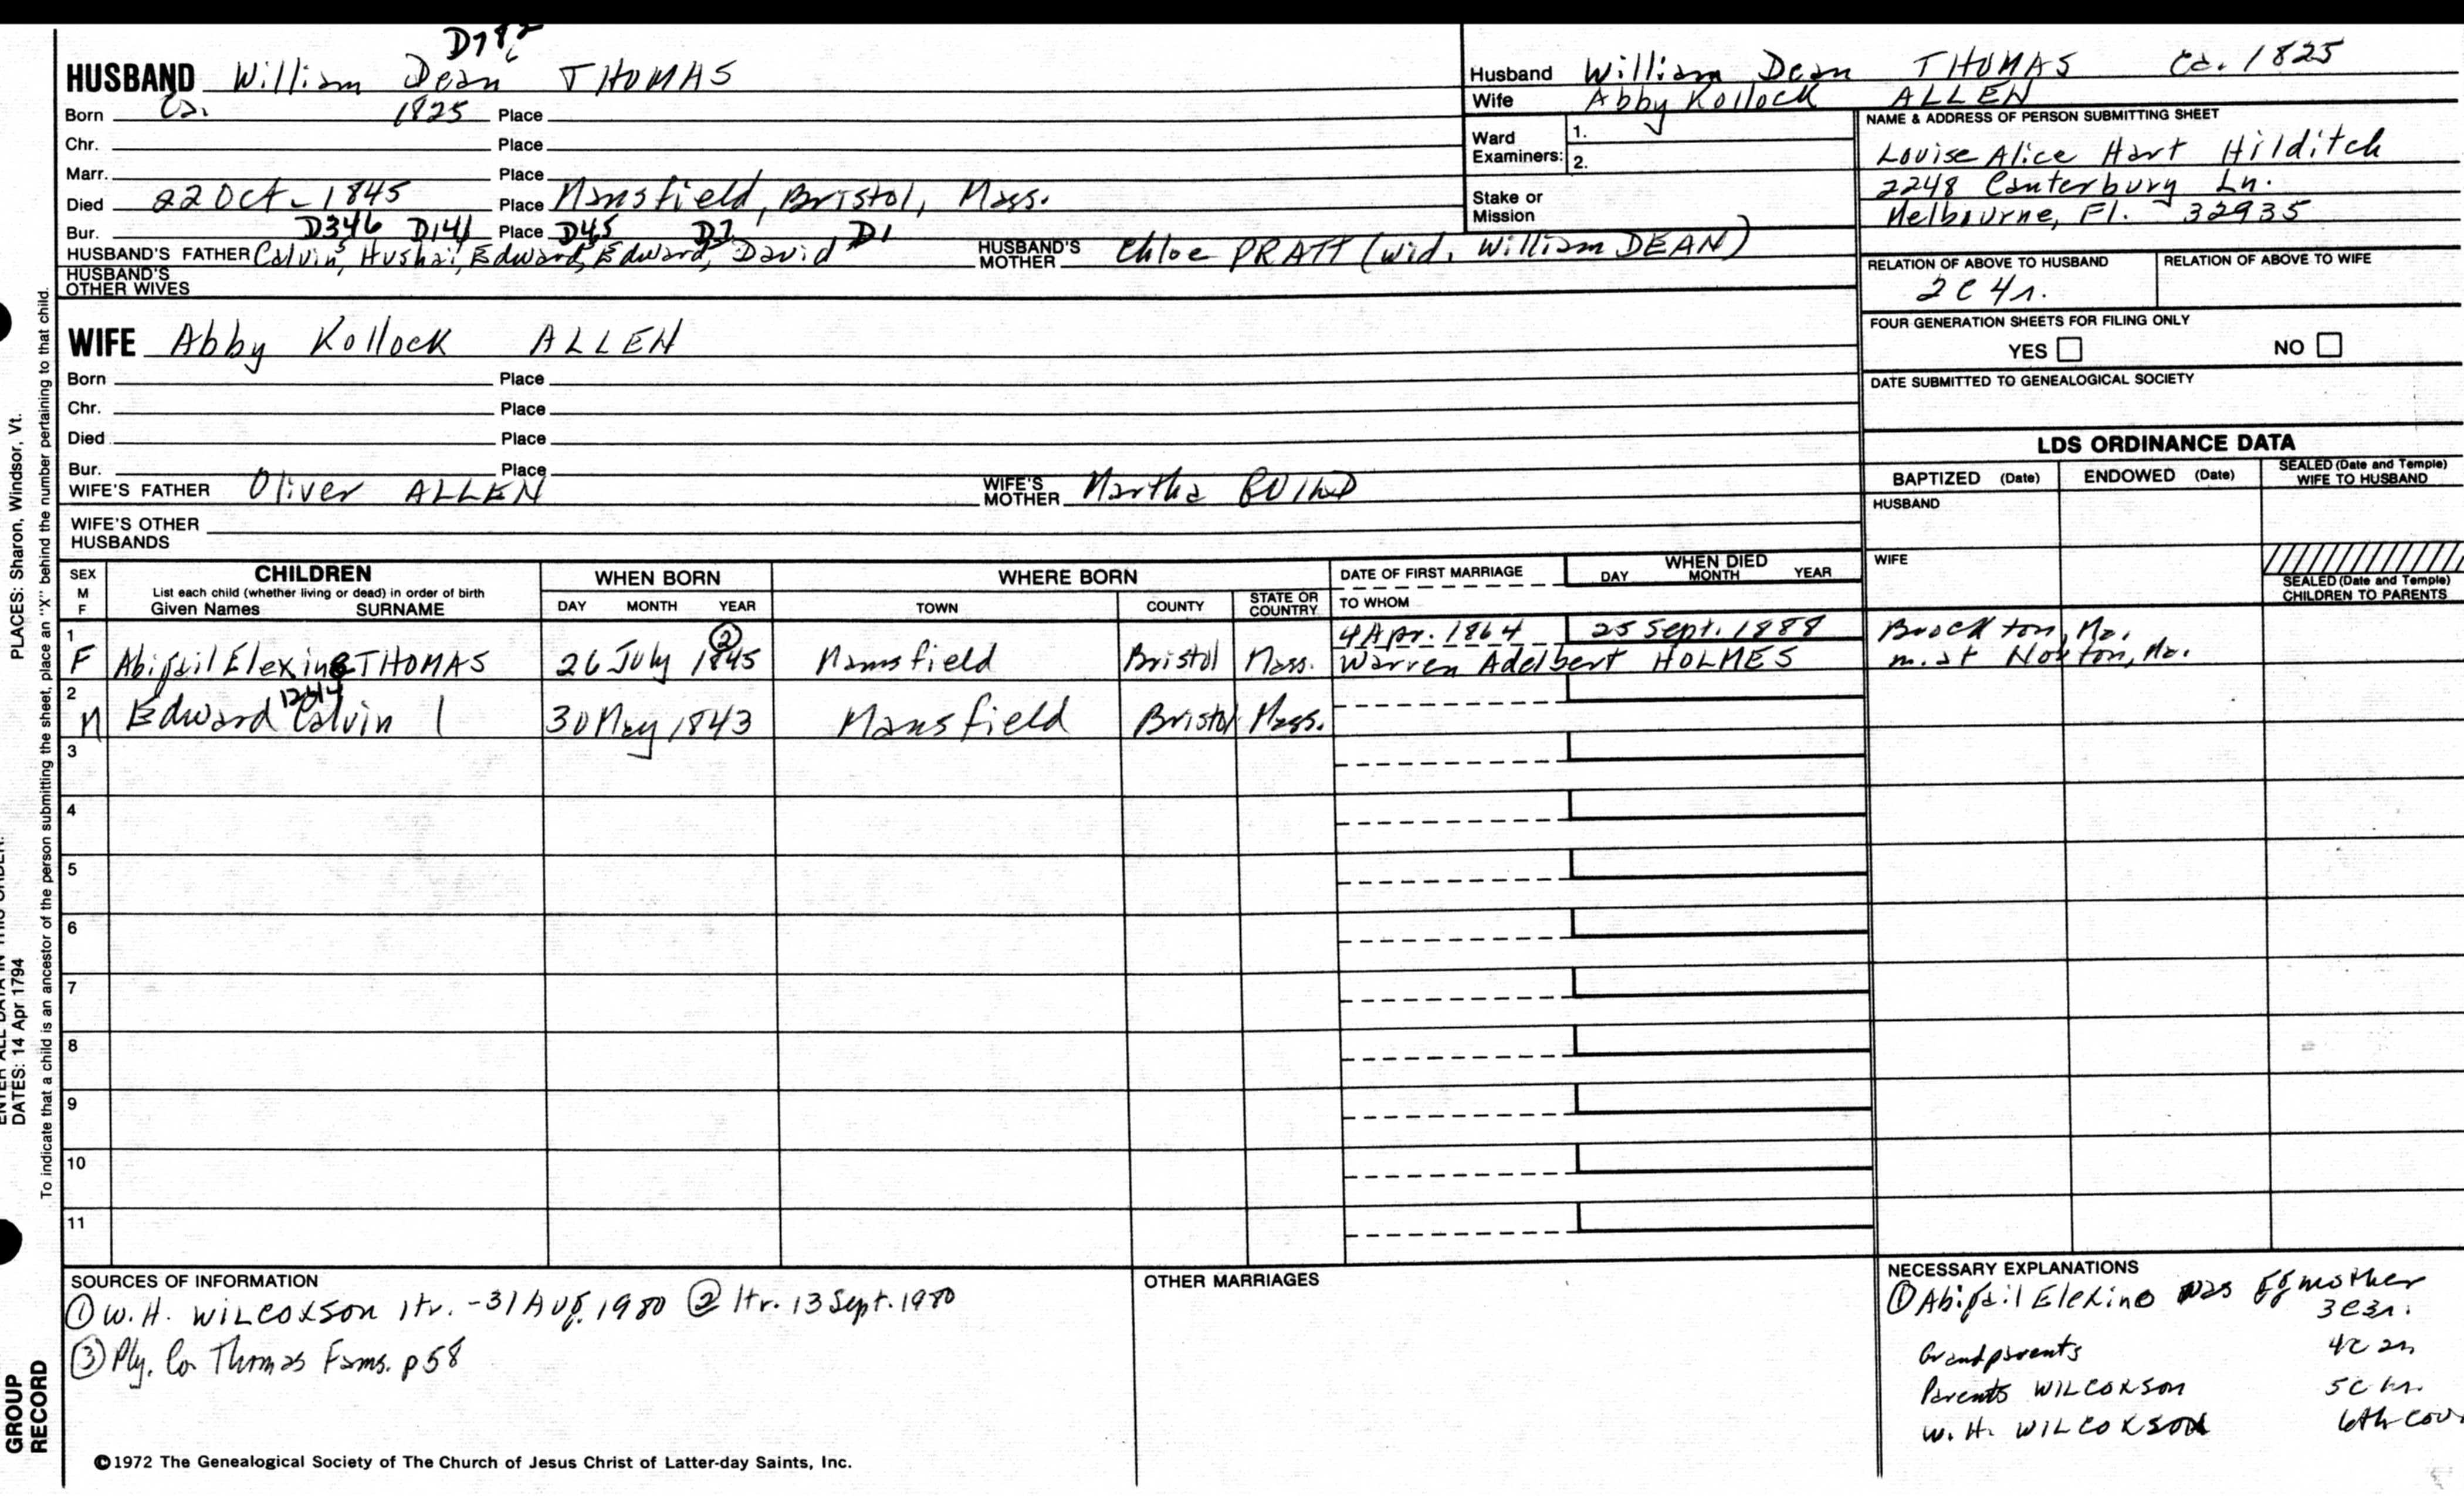 D782
HUSBAND William Dean THOMAS
Born Ca. 1825 Place
Chr. Place
Marr. Place
Died 22 Oct - 1845 Place Mansfield, Bristol, Mass.
Bur. Place
D346 D141 D45 D7 D1
HUSBAND'S FATHER Calvin, Hushai, Edward, Edward, David HUSBAND'S MOTHER Chloe PRATT (wid. William DEAN)
HUSBAND'S OTHER WIVES
WIFE Abby Kollock ALLEN
Born Place
Chr. Place
Died Place
Bur. Place
WIFE'S FATHER Oliver ALLEN WIFE'S MOTHER Martha
WIFE'S OTHER HUSBANDS
Husband William Dean THOMAS Ca. 1825
Wife Abby Kollock ALLEN
Ward Examiners: 1.
2.
Stake or Mission
NAME & ADDRESS OF PERSON SUBMITTING SHEET
Louise Alice Hart Hilditch
2248 Canterbury Ln.
Melbourne, Fl. 32935
RELATION OF ABOVE TO HUSBAND RELATION OF ABOVE TO WIFE
2c 4r.
FOUR GENERATION SHEETS FOR FILING ONLY
YES NO
DATE SUBMITTED TO GENEALOGICAL SOCIETY
LDS ORDINANCE DATA
BAPTIZED (Date) ENDOWED (Date) SEALED (Date and Temple) WIFE TO HUSBAND
HUSBAND
WIFE
SEALED (Date and Temple) CHILDREN TO PARENTS
SEX M F CHILDREN List each child (whether living or dead) in order of birth Given Names SURNAME
WHEN BORN DAY MONTH YEAR
WHERE BORN TOWN COUNTY STATE OR COUNTRY
DATE OF FIRST MARRIAGE TO WHOM
WHEN DIED DAY MONTH YEAR
1 4 Apr. 1864 25 Sept. 1888 Brockton, Ma.
F Abigail Elexine THOMAS 26 July 1845 ② Mansfield Bristol Mass. Warren Adelbert HOLMES m. at Norton, Ma.
2
M Edward Calvin 30 May 1843 Mansfield Bristol Mass.
3
4
5
6
7
8
9
10
11
SOURCES OF INFORMATION
① W.H. WILCOXSON ltr. - 31 Aug. 1980 ② ltr. 13 Sept. 1980
③ Ply. Co Thomas Fams. p 58
OTHER MARRIAGES
NECESSARY EXPLANATIONS
① Abigail Elexine was ggmother
3c3r.
Grandparents 4c 2r
Parents WILCOXSON 5c 1r.
W. H. WILCOXSON 6th cou
©1972 The Genealogical Society of The Church of Jesus Christ of Latter-day Saints, Inc.
PLACES: Sharon, Windsor, Vt.
To indicate that a child is an ancestor of the person submitting the sheet, place an "X" behind the number pertaining to that child.
ENTER ALL DATA IN THIS ORDER:
DATES: 14 Apr 1794
GROUP
RECORD